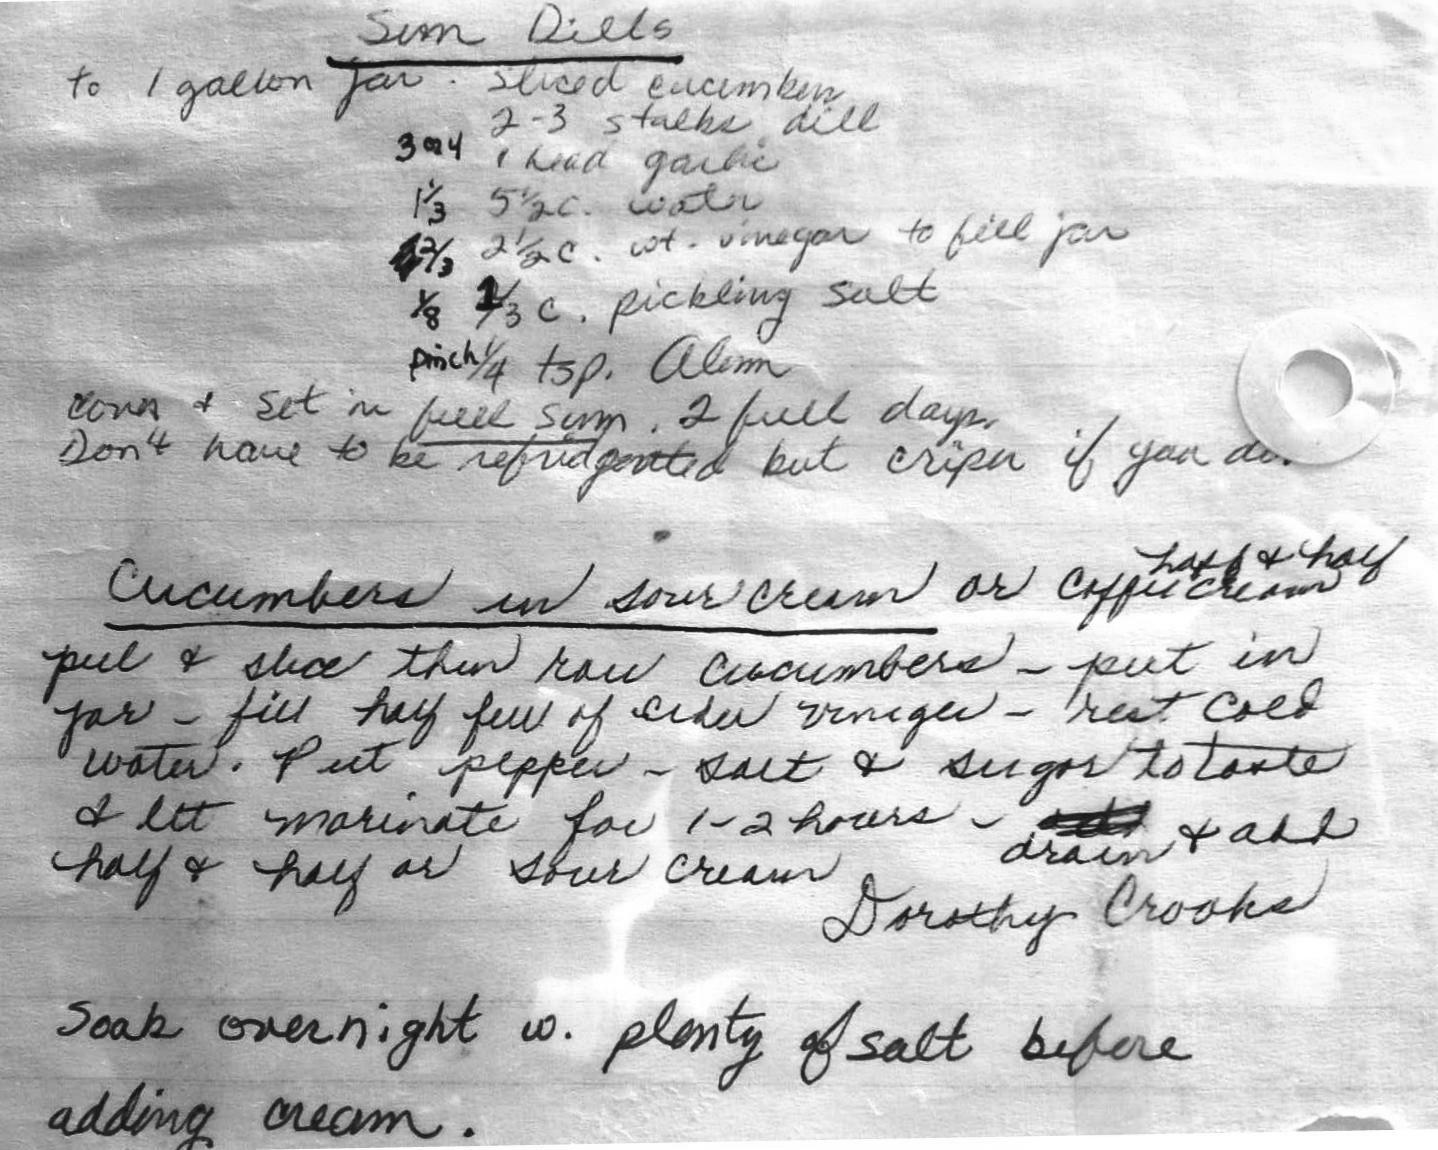 Sun Dills
to 1 gallon jar. sliced cucumbers
2-3 stalks dill
3 or 4 1 head garlic
1 1/3 5 1/2 c. water
2/3 2 1/2 c. wt. vinegar to fill jar
1/8 1/3 c. pickling salt
pinch 1/4 tsp. Alum
cover & set in full sun. 2 full days.
Don't have to be refridgerated but criper if you do.
Cucumbers in sour cream or coffee cream half & half
peel & slice thin raw cucumbers - put in
jar - fill half full of cider viniger - rest cold
water. Put pepper - salt & sugar to taste
& let marinate for 1-2 hours - drain & add
half & half or sour cream
Dorothy Crooks
Soak overnight w. plenty of salt before
adding cream.